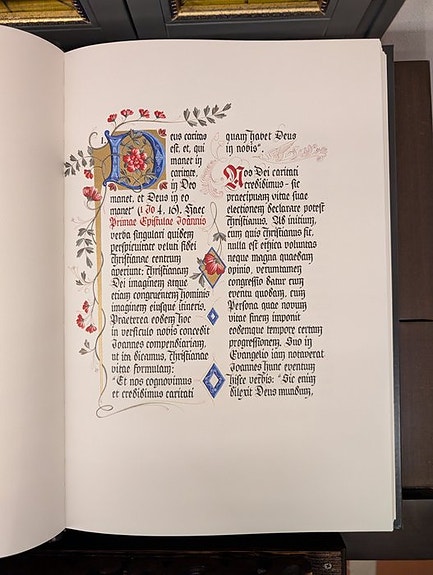 1. Deus caritas
est, et, qui
manet in
caritate,
in Deo
manet, et Deus in eo
manet" (1 Io 4, 16). Haec
Primae Epistulae Ioannis
verba singulari quidem
perspicuitate veluti fidei
christianae centrum
aperiunt: christianam
Dei imaginem atque
etiam congruentem hominis
imaginem eiusque itineris.
Praeterea eodem hoc
in versiculo nobis concedit
Ioannes compendiariam,
ut ita dicamus, christianae
vitae formulam:
"Et nos cognovimus
et credidimus caritati
quam habet Deus
in nobis".
Nos Dei caritati
credidimus - sic
praecipuam vitae suae
electionem declarare potest
christianus. Ad initium,
cum quis christianus fit,
nulla est ethica voluntas
neque magna quaedam
opinio, verumtamen
congressio datur cum
eventu quodam, cum
Persona quae novum
vitae finem imponit
eodemque tempore certam
progressionem. Suo in
Evangelio iam notaverat
Ioannes hunc eventum
hisce verbis: "Sic enim
dilexit Deus mundum,